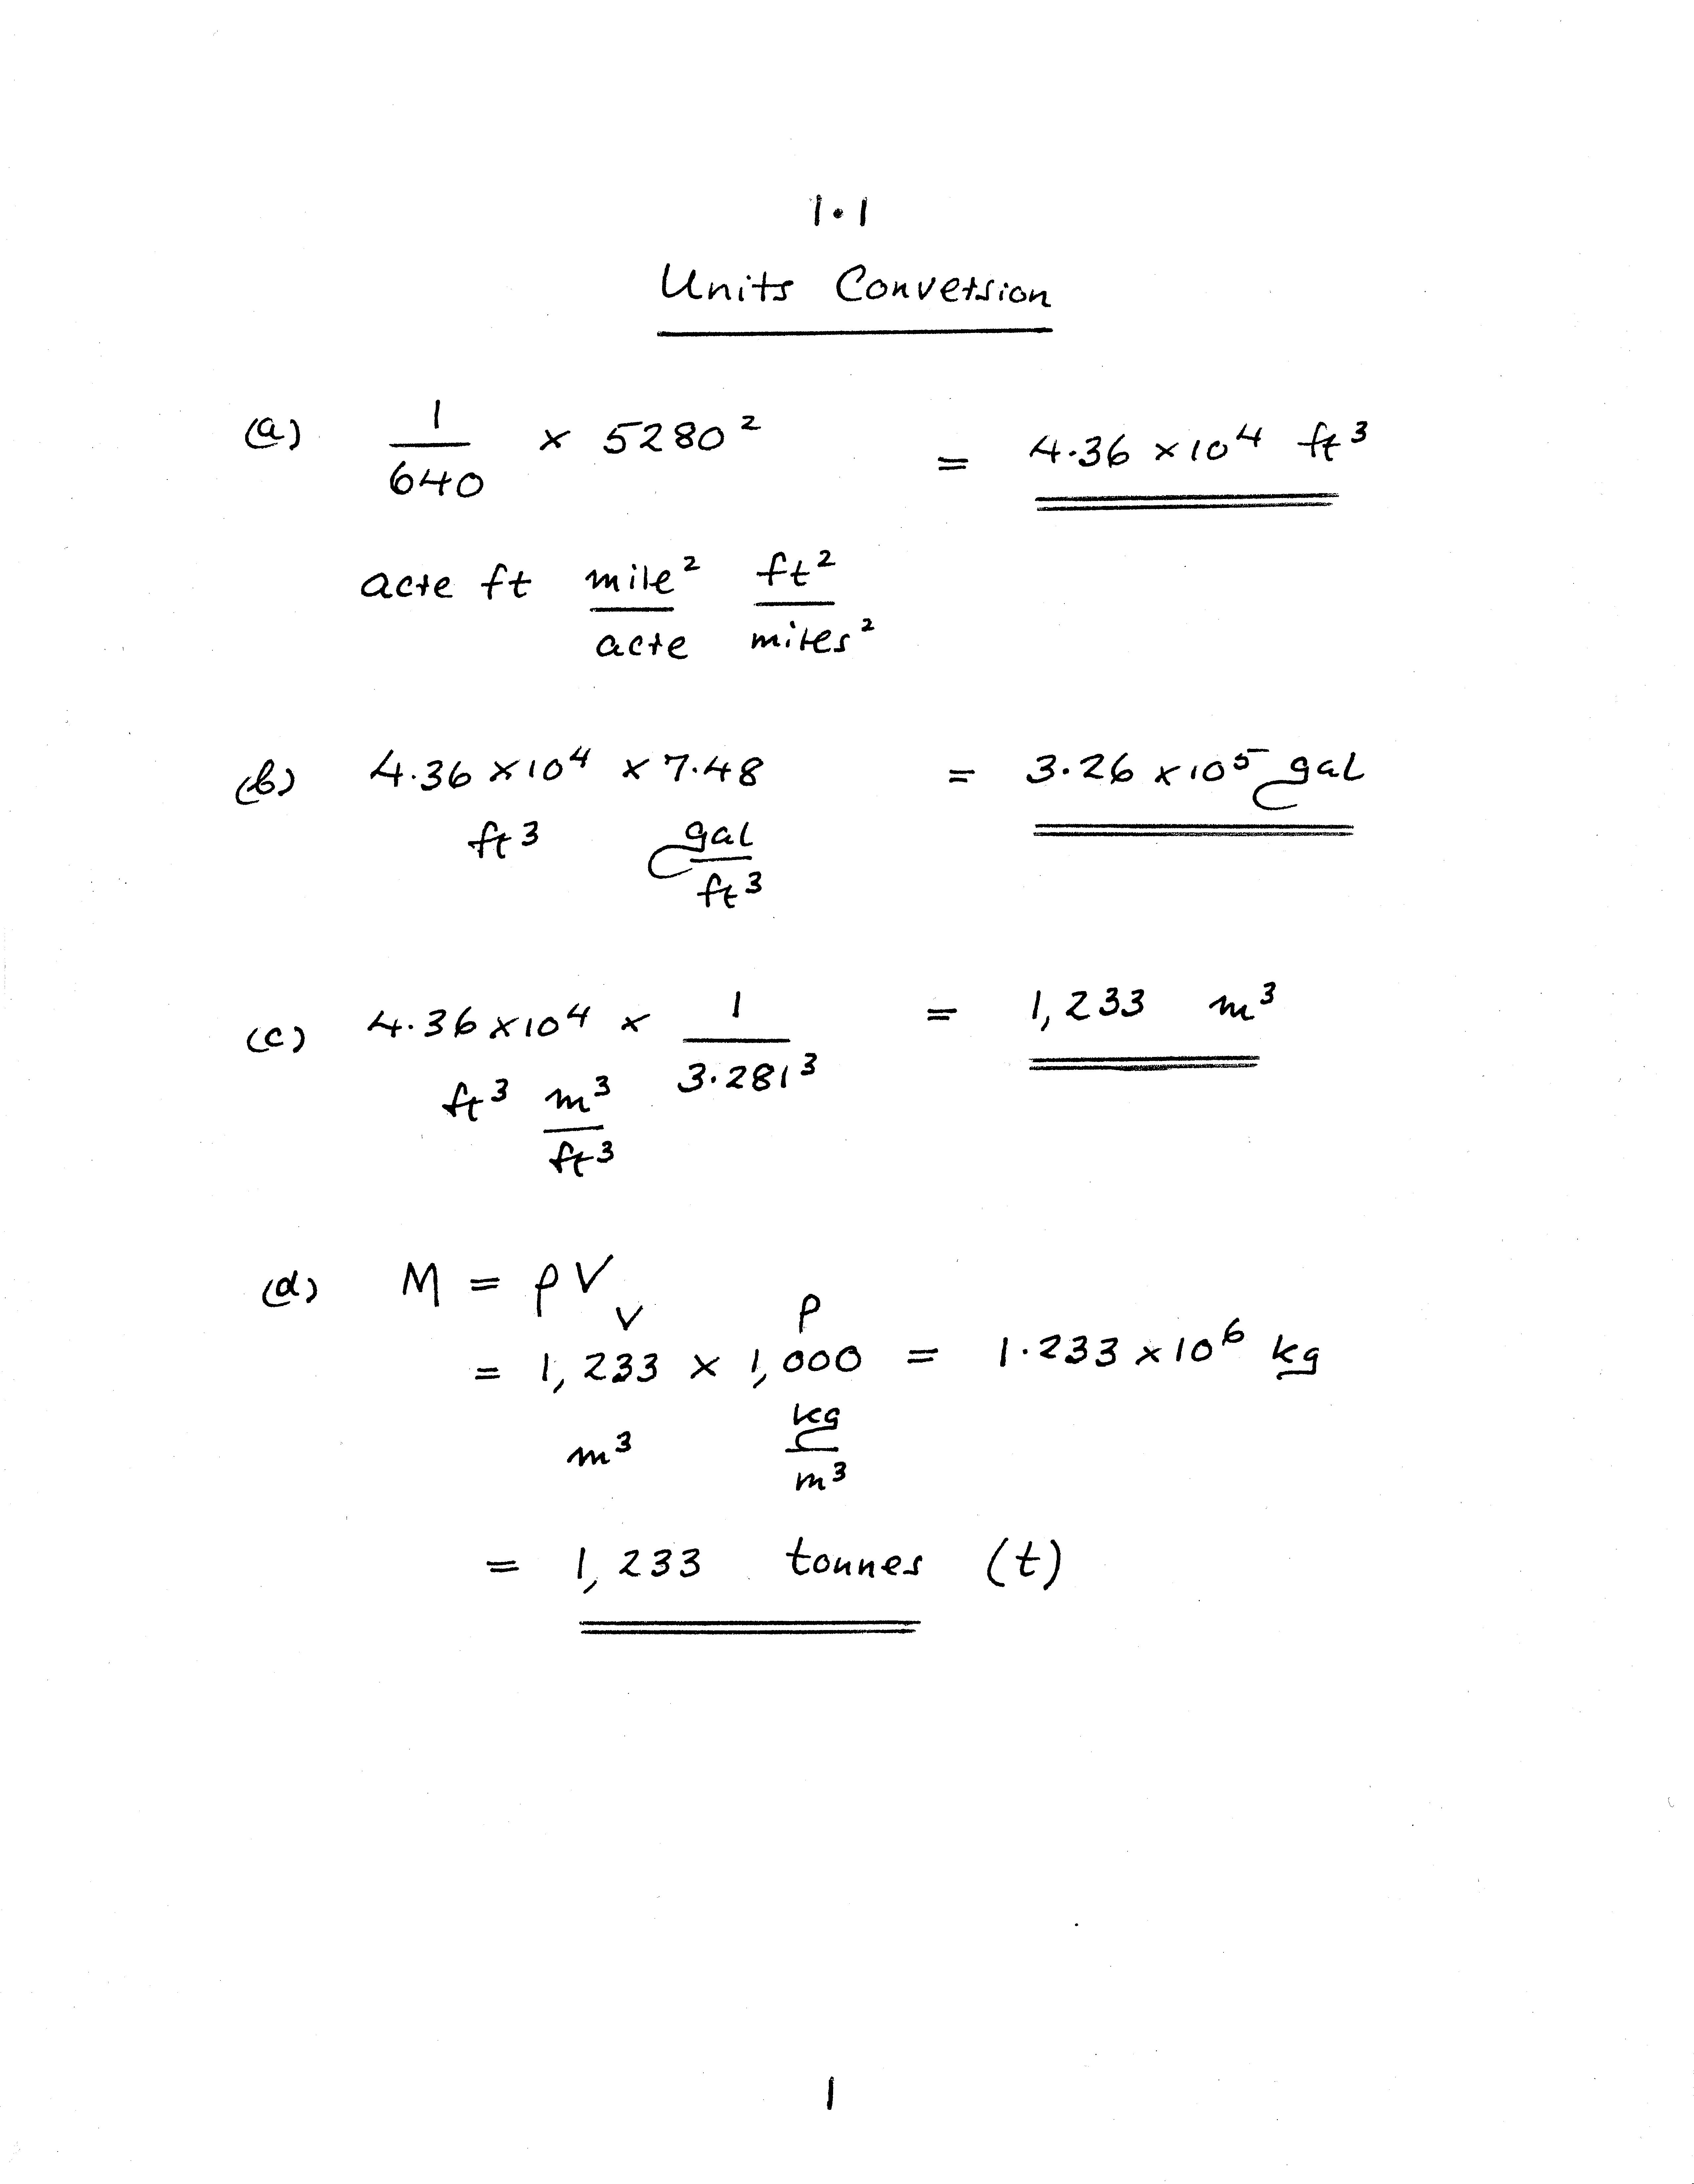 1.1
Units Conversion
(a) 1/640 × 5280² = 4.36 × 10⁴ ft³
acre ft mile²/acre ft²/miles²
(b) 4.36 × 10⁴ × 7.48 = 3.26 × 10⁵ gal
ft³ gal/ft³
(c) 4.36 × 10⁴ × 1/3.281³ = 1,233 m³
ft³ m³/ft³
(d) M = ρV
V ρ
= 1,233 × 1,000 = 1.233 × 10⁶ kg
m³ kg/m³
= 1,233 tonnes (t)
1